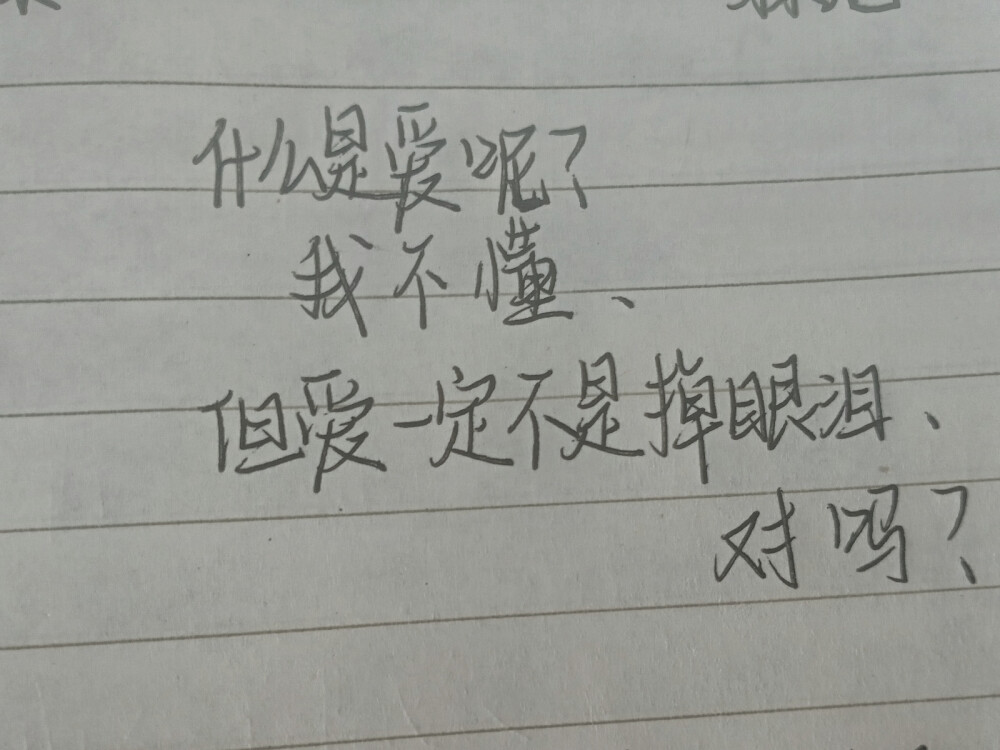 什么是爱呢?
我不懂、
但爱一定不是掉眼泪、
对吗?